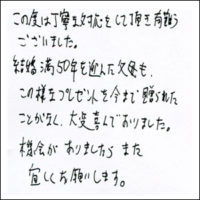 この度は丁寧な対応をして頂き有難う
ございました。
結婚満50年を迎えた父母も、
この様なプレゼントを今まで贈られた
ことがなく、大変喜んでおりました。
機会がありましたら また
宜しくお願いします。